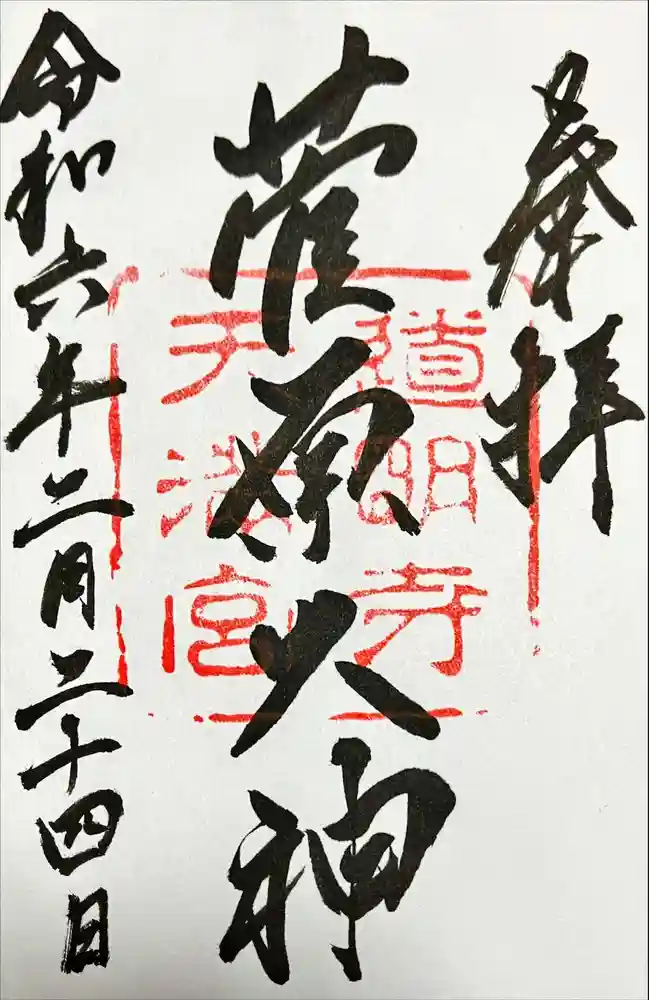 奉拝
菅原大神
道明寺
天満宮
令和六年二月二十四日